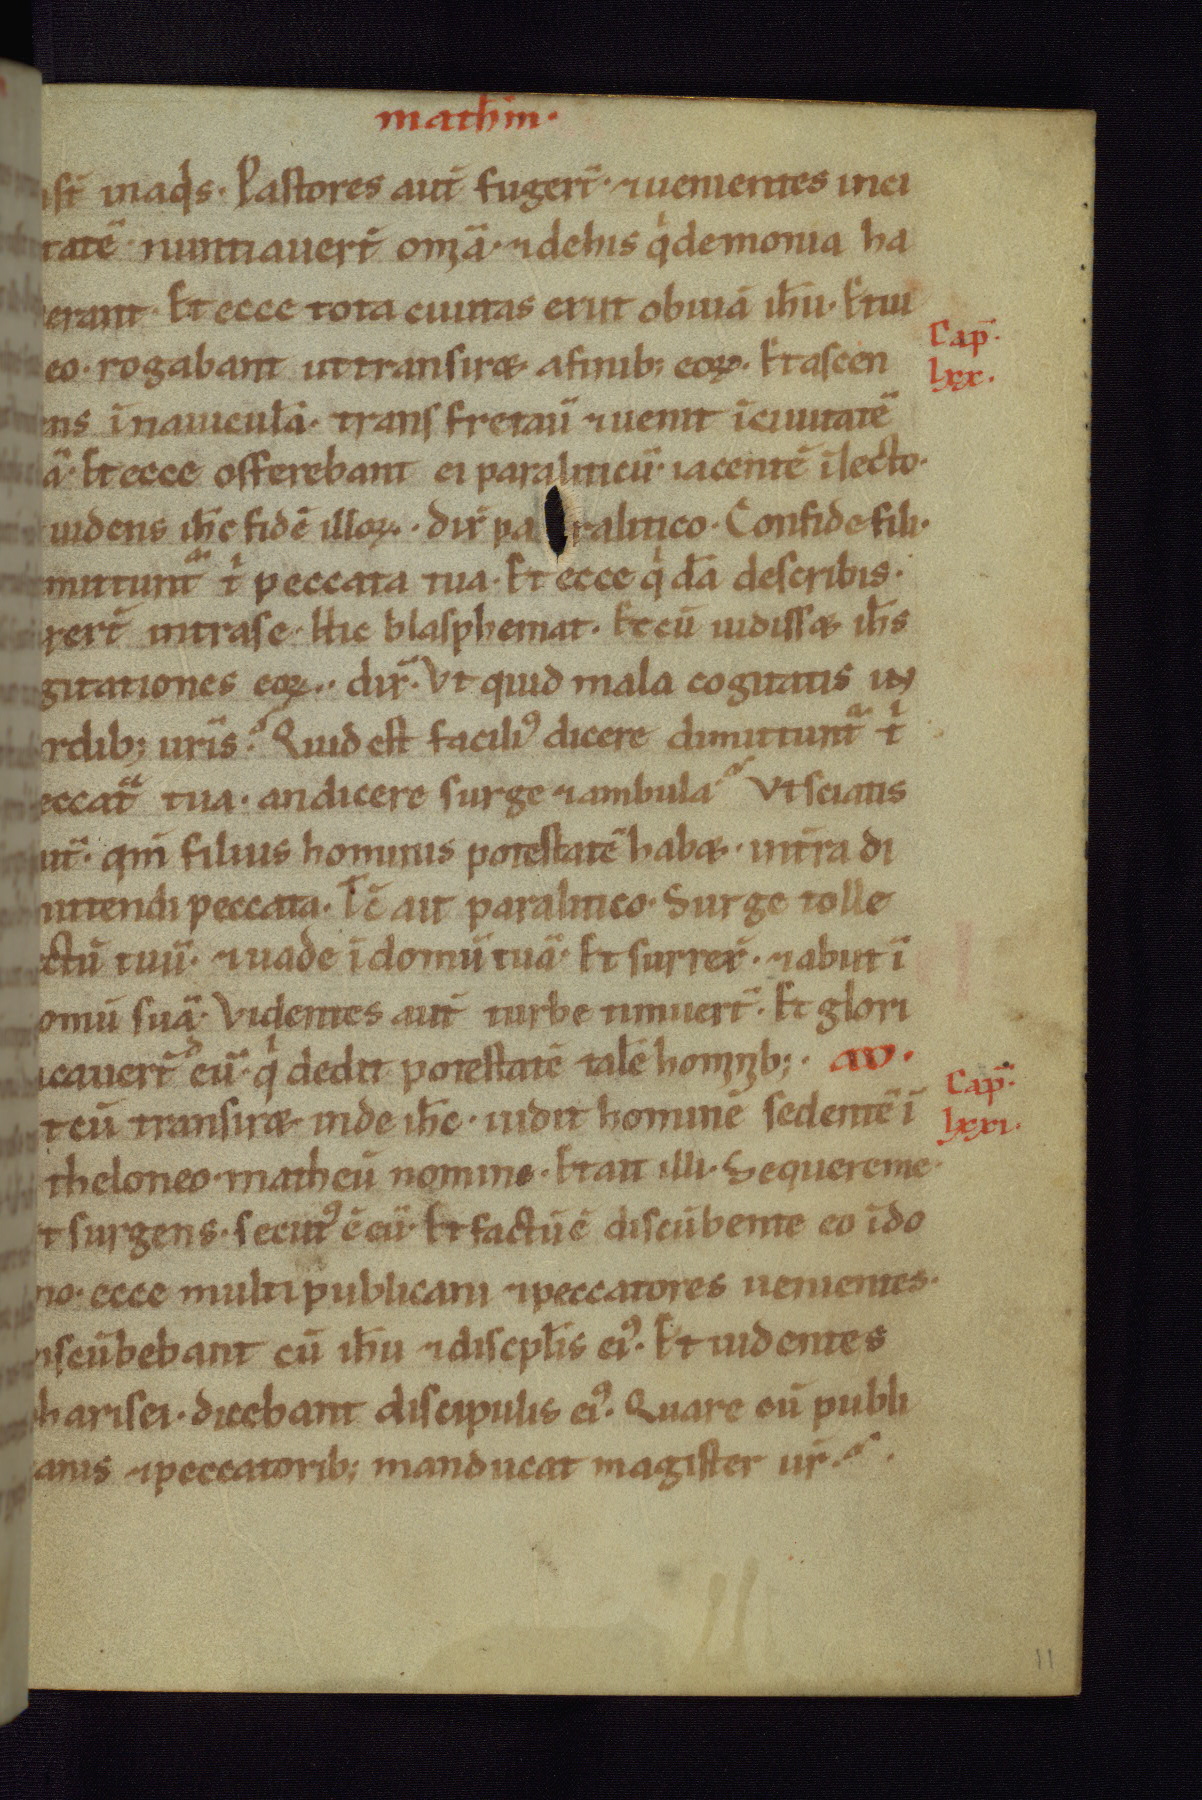 mathm̅·
st̅ in aqͥs. Pastores aut̅ fugert̅· ⁊ uenientes in ci
tatē nuntiauert̅ om̅a· ⁊ de his qͥ demonia ha
erant. Et ecce tota ciuitas exiit obuiā ih̅u. Et ui
eo· rogabant ut transiret a finib; eoꝝ. Et ascen
ens ī nauiculā· transfretau̅ ⁊ uenit ī ciuitatē
ā. Et ecce offerebant ei paraliticū· iacentē ī lecto·
uidens ih̅c fidē illoꝝ· dix̅ pa ralitico. Confide fili·
mittunt᷑ tͥ peccata tua. Et ecce qͥdā de scribis·
xert̅ intra se· Hic blasphemat. Et cū uidisset ih̅s
gitationes eoꝝ· dix̅. Ut quid mala cogitatis in
rdib; ur̅is? Quid est facili᷒ dicere dimittunt᷑ tͥ
eccata̅ tua· an dicere surge ⁊ ambula? Ut sciatis
ut̅· qm̅ filius hominis potestatē habet· in tr̅a di
ittendi peccata. Tc̅ ait paralitico. Surge tolle
ctū tuū· ⁊ uade ī domū tuā. Et surrex̅· ⁊ abiit ī
omū suā. Videntes aut̅ turbe timuert̅. Et glori
icauert̅ dm̅· qͥ dedit potestatē talē hominib;·
Cap̅·
lxx·
t cū transiret inde ih̅c· uidit hominē sedentē ī
theloneo· matheū nomine. Et ait illi. Sequere me·
t surgens· secut᷒ ē eū. Et factū ē discūbente eo ī do
mo· ecce multi publicani ⁊ peccatores uenientes·
iscūbebant cū ih̅u ⁊ discipl̅is ei᷒. Et uidentes
harisei· dicebant discipulis ei᷒. Quare cū publi
anis ⁊ peccatorib; manducat magister ur̅?
Cap̅·
lxxi·
11